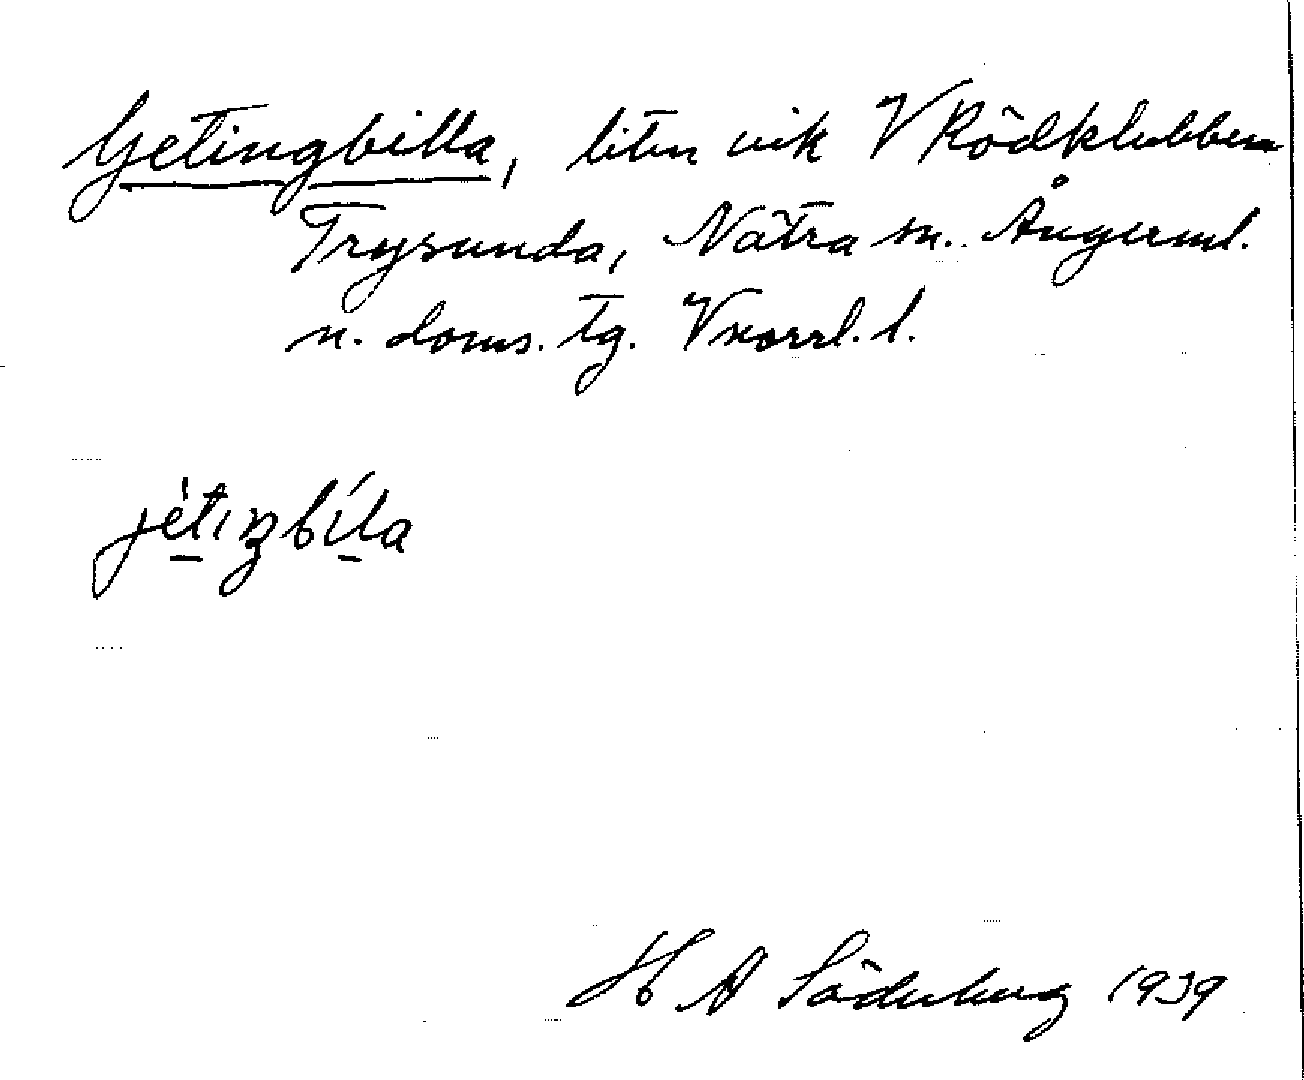 Getingbilla, liten vik V Rödklubben
Trysunda, Nätra sn. Ångerml.
n. doms. tg. Vnorrl. l.
jétiŋbíla
H A Söderberg 1939